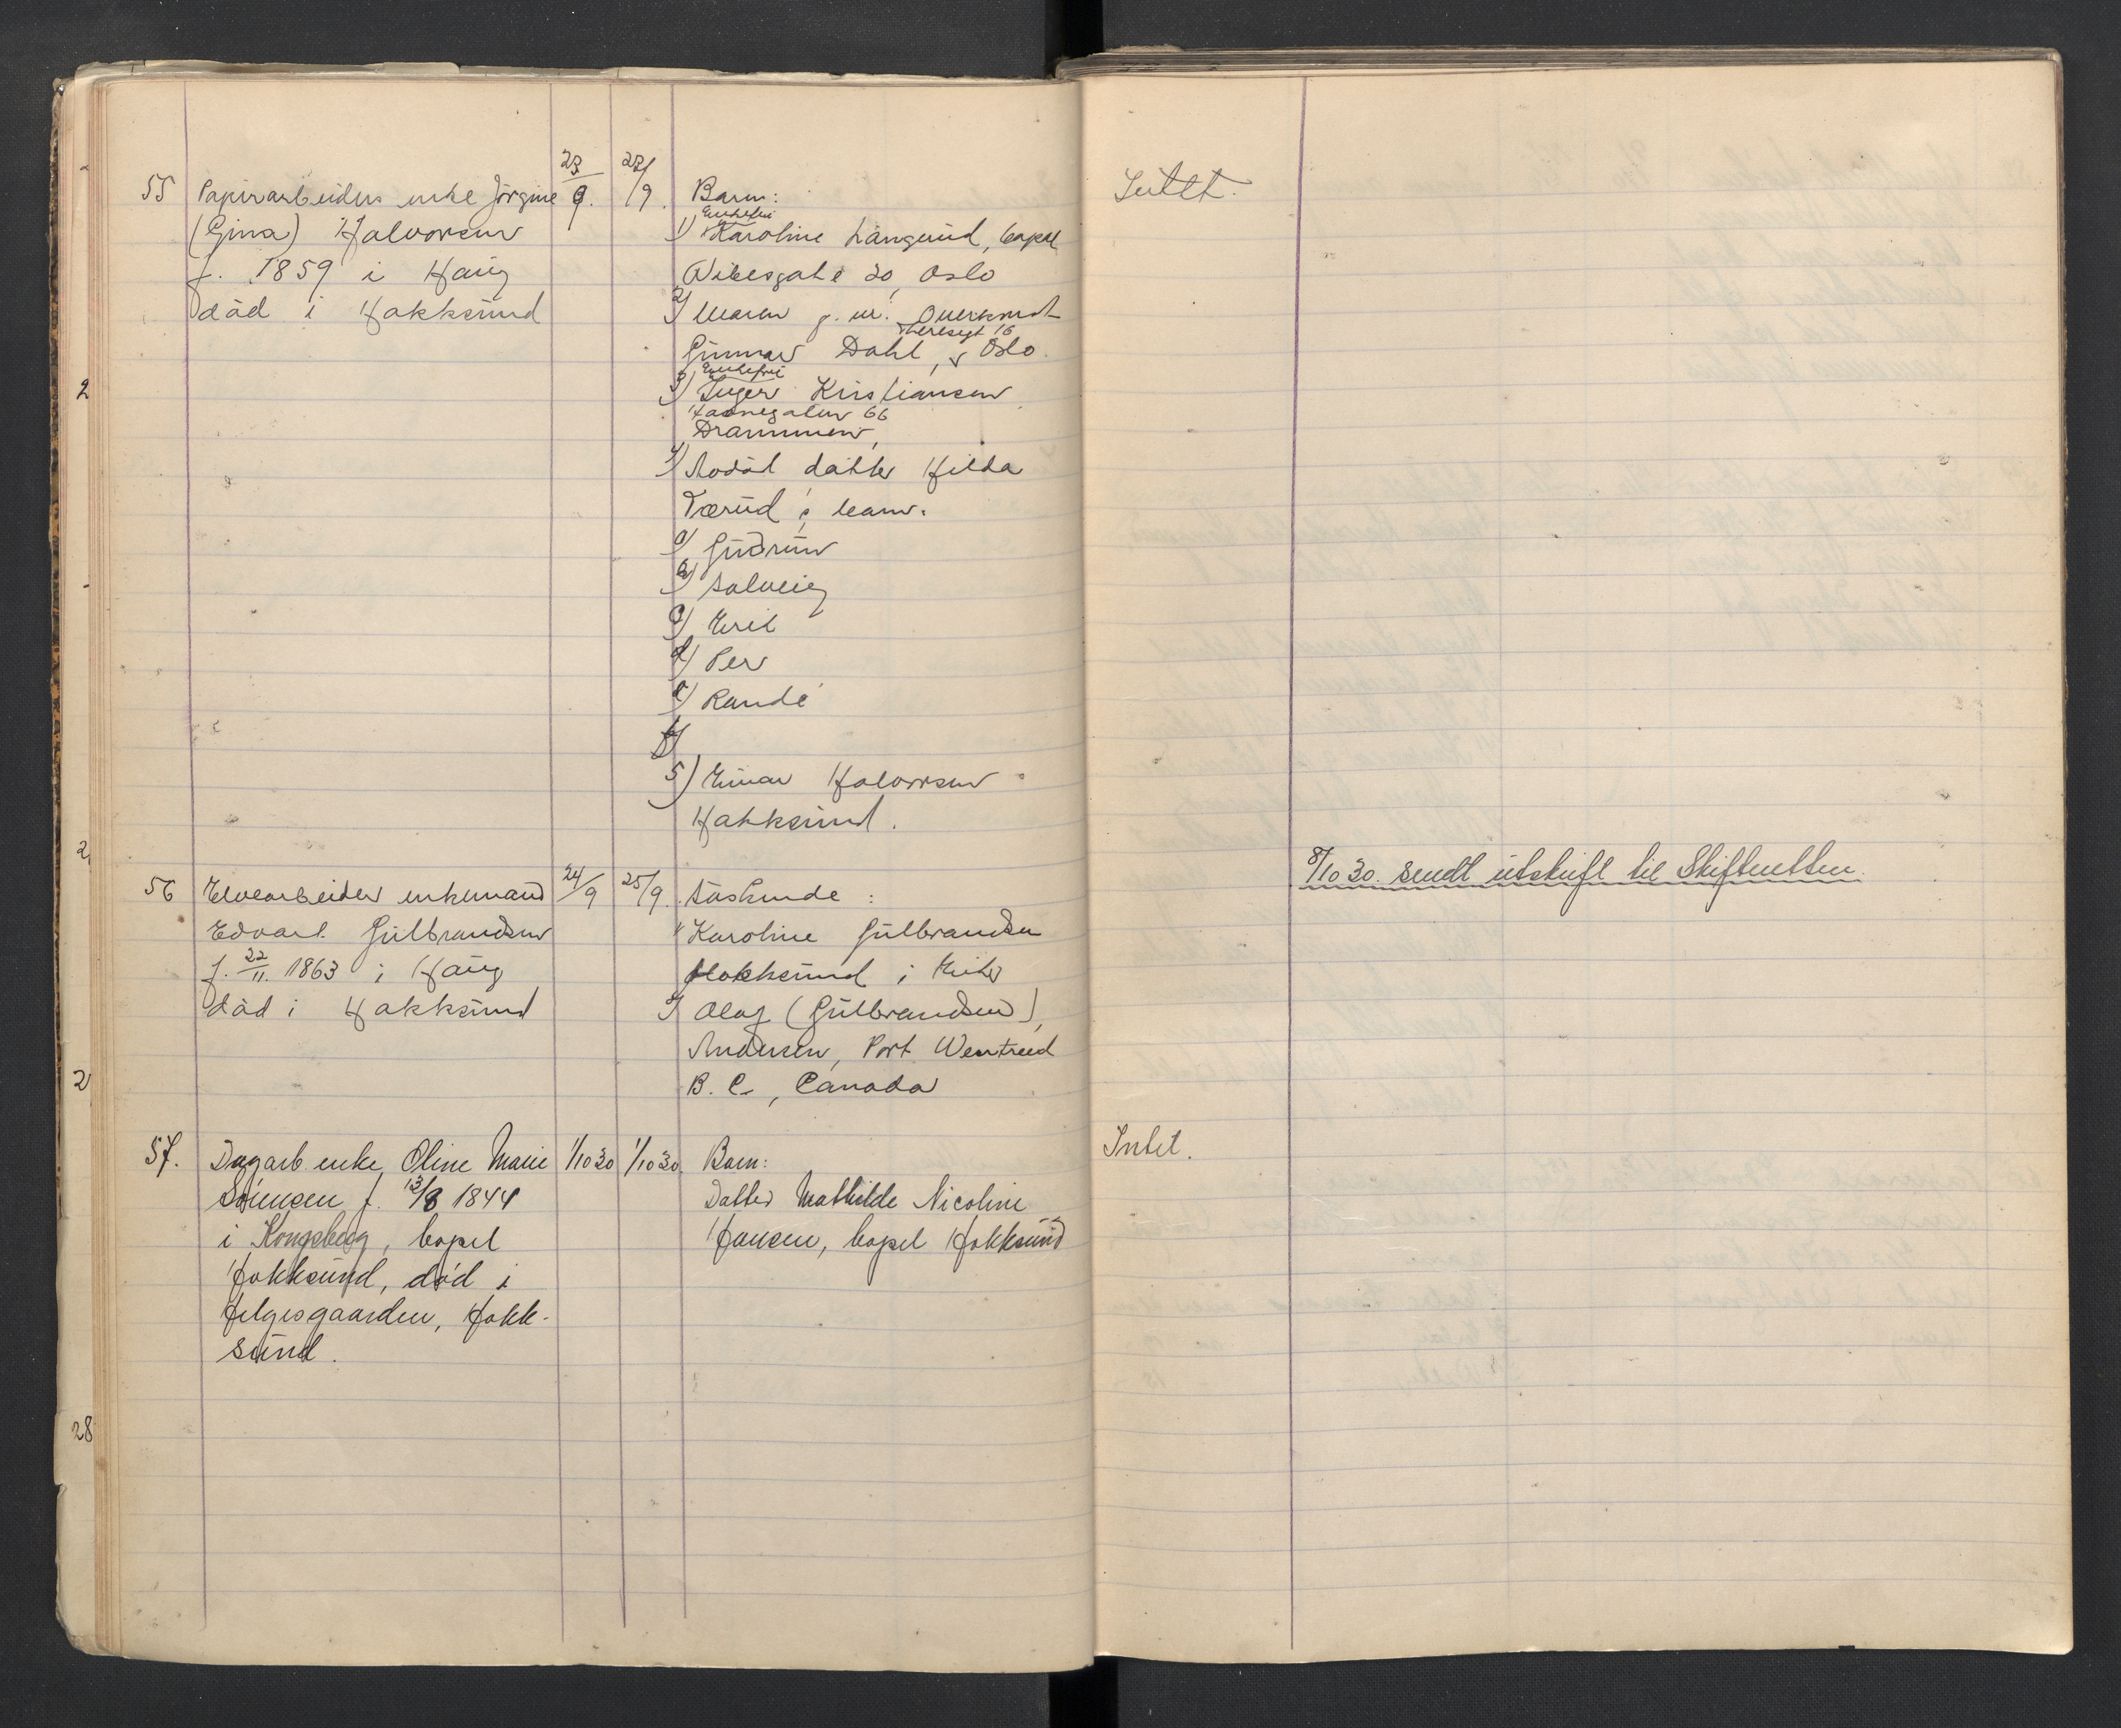 55 Papirarbeiders enke Jörgine 23/9. 23/9. Barn: Intet.
(Gina) Halvorsen
f. 1859 i Haug
död i Hokksund
1) Enkefru Karoline Langerud, bopæl
Wibesgate 20, Oslo
2) Maren g. m.
Gunnar Dahl, Theresegt 16 Oslo.
3) Enkefru Inger Kristiansen
Haanegaten 66
Drammen,
4) Avdöd datter Hilda
Tærud's barn:
a) Gudrun
b) Solveig
c) Eril
d) Per
e) Randi
f)
5) Einar Halvorsen
Hokksund.
8/10 30. sendt utskrift til Skifteretten.
56 Elvearbeider enkemand 24/9 25/9. Söskende:
Edvart Gulbrandsen
f. 22/11. 1863 i Haug
död i Hokksund
1/ Karoline Gulbrandsen
Hokksund i Eiker
2/ Olaf (Gulbrandsen),
Andersen, Port
B. C., Canada
57. Dagarb. enke Oline Marie 1/10 30 1/10 30 Barn: Intet.
Sörensen f. 13/8 1844
i Kongsberg, bopel
Hokksund, död i
Helgesgaarden, Hokk-
sund.
Datter Mathilde Nicoline
Hansen, bopel Hokksund
2
2
2
28